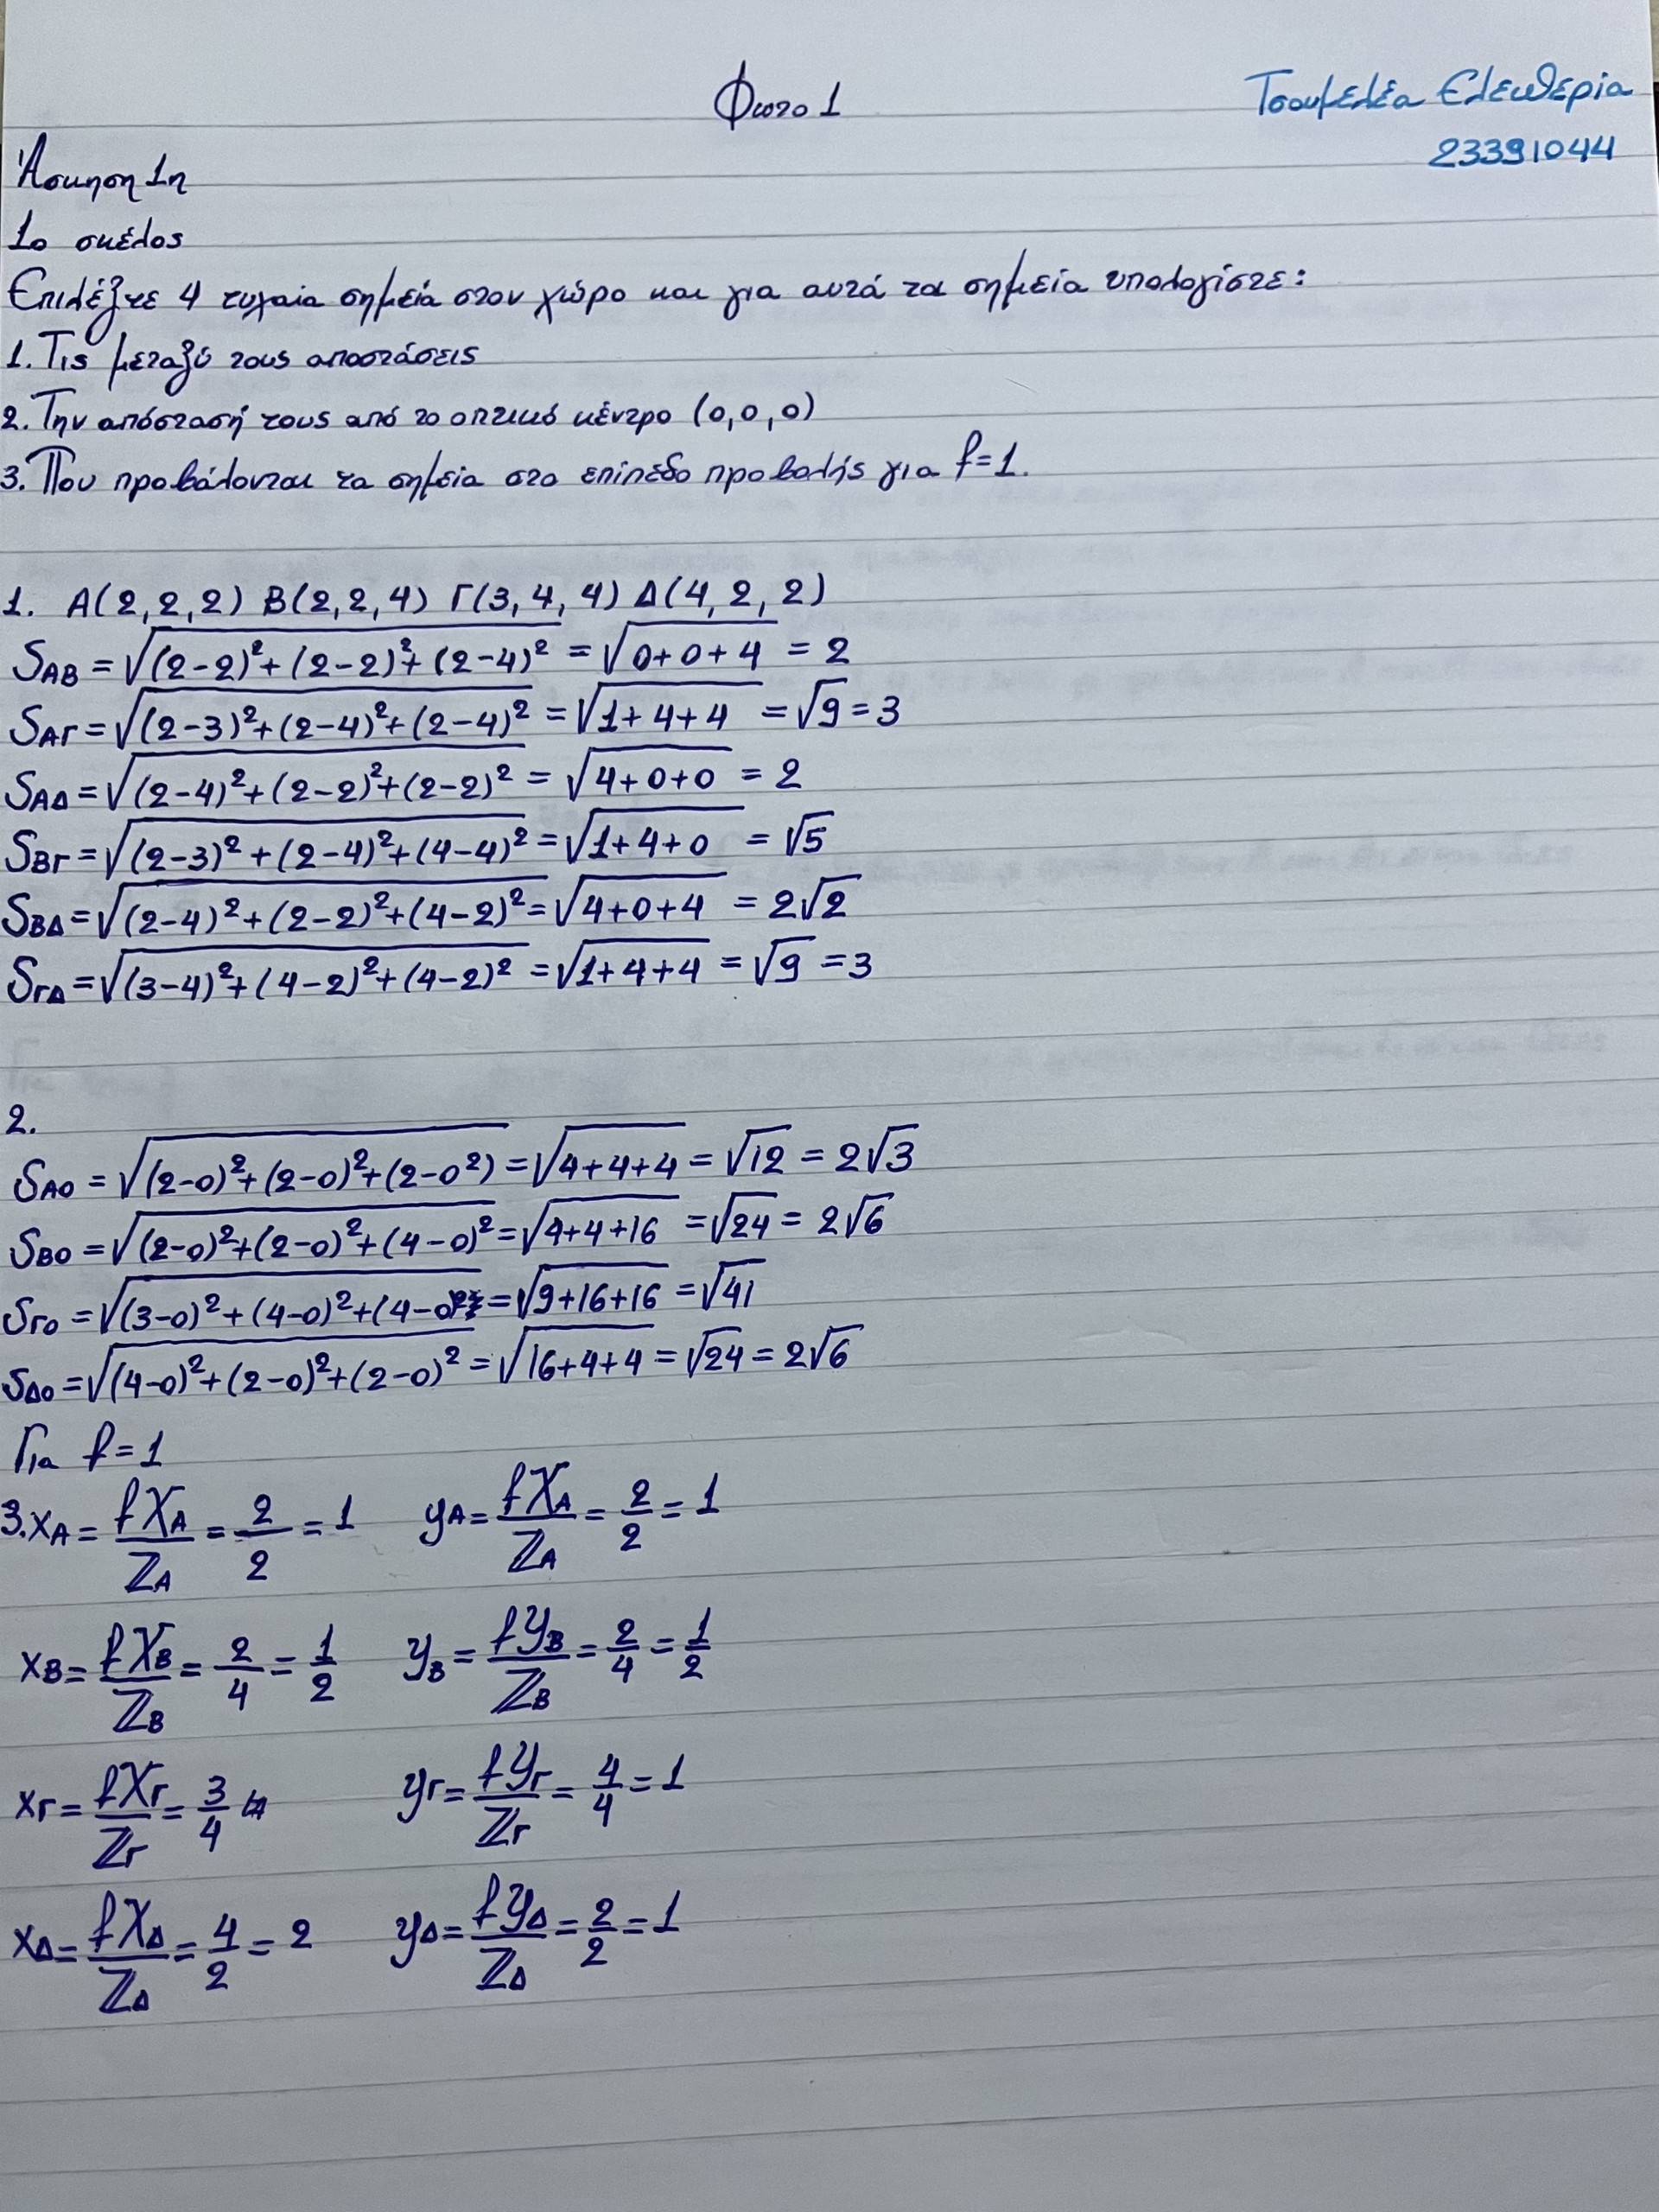 Φωτο 1
Τσουμελέα Ελευθερία
23391044
Άσκηση 1η
1ο σκέλος
Επιλέξτε 4 τυχαία σημεία στον χώρο και για αυτά τα σημεία υπολογίστε:
1. Τις μεταξύ τους αποστάσεις
2. Την απόστασή τους από το οπτικό κέντρο (0,0,0)
3. Που προβάλονται τα σημεία στο επίπεδο προβολής για f=1.
1. Α(2,2,2) Β(2,2,4) Γ(3,4,4) Δ(4,2,2)
SAB = √(2-2)²+(2-2)²+(2-4)² = √0+0+4 = 2
SAΓ = √(2-3)²+(2-4)²+(2-4)² = √1+4+4 = √9 = 3
SAΔ = √(2-4)²+(2-2)²+(2-2)² = √4+0+0 = 2
SBΓ = √(2-3)²+(2-4)²+(4-4)² = √1+4+0 = √5
SBΔ = √(2-4)²+(2-2)²+(4-2)² = √4+0+4 = 2√2
SΓΔ = √(3-4)²+(4-2)²+(4-2)² = √1+4+4 = √9 = 3
2.
SAO = √(2-0)²+(2-0)²+(2-0²) = √4+4+4 = √12 = 2√3
SBO = √(2-0)²+(2-0)²+(4-0)² = √4+4+16 = √24 = 2√6
SΓO = √(3-0)²+(4-0)²+(4-0)² = √9+16+16 = √41
SΔO = √(4-0)²+(2-0)²+(2-0)² = √16+4+4 = √24 = 2√6
Για f=1
3. xA = fXA/ZA = 2/2 = 1 yA = fXA/ZA = 2/2 = 1
xB = fXB/ZB = 2/4 = 1/2 yB = fyB/ZB = 2/4 = 1/2
xΓ = fXΓ/ZΓ = 3/4 yΓ = fyΓ/ZΓ = 4/4 = 1
xΔ = fXΔ/ZΔ = 4/2 = 2 yΔ = fyΔ/ZΔ = 2/2 = 1